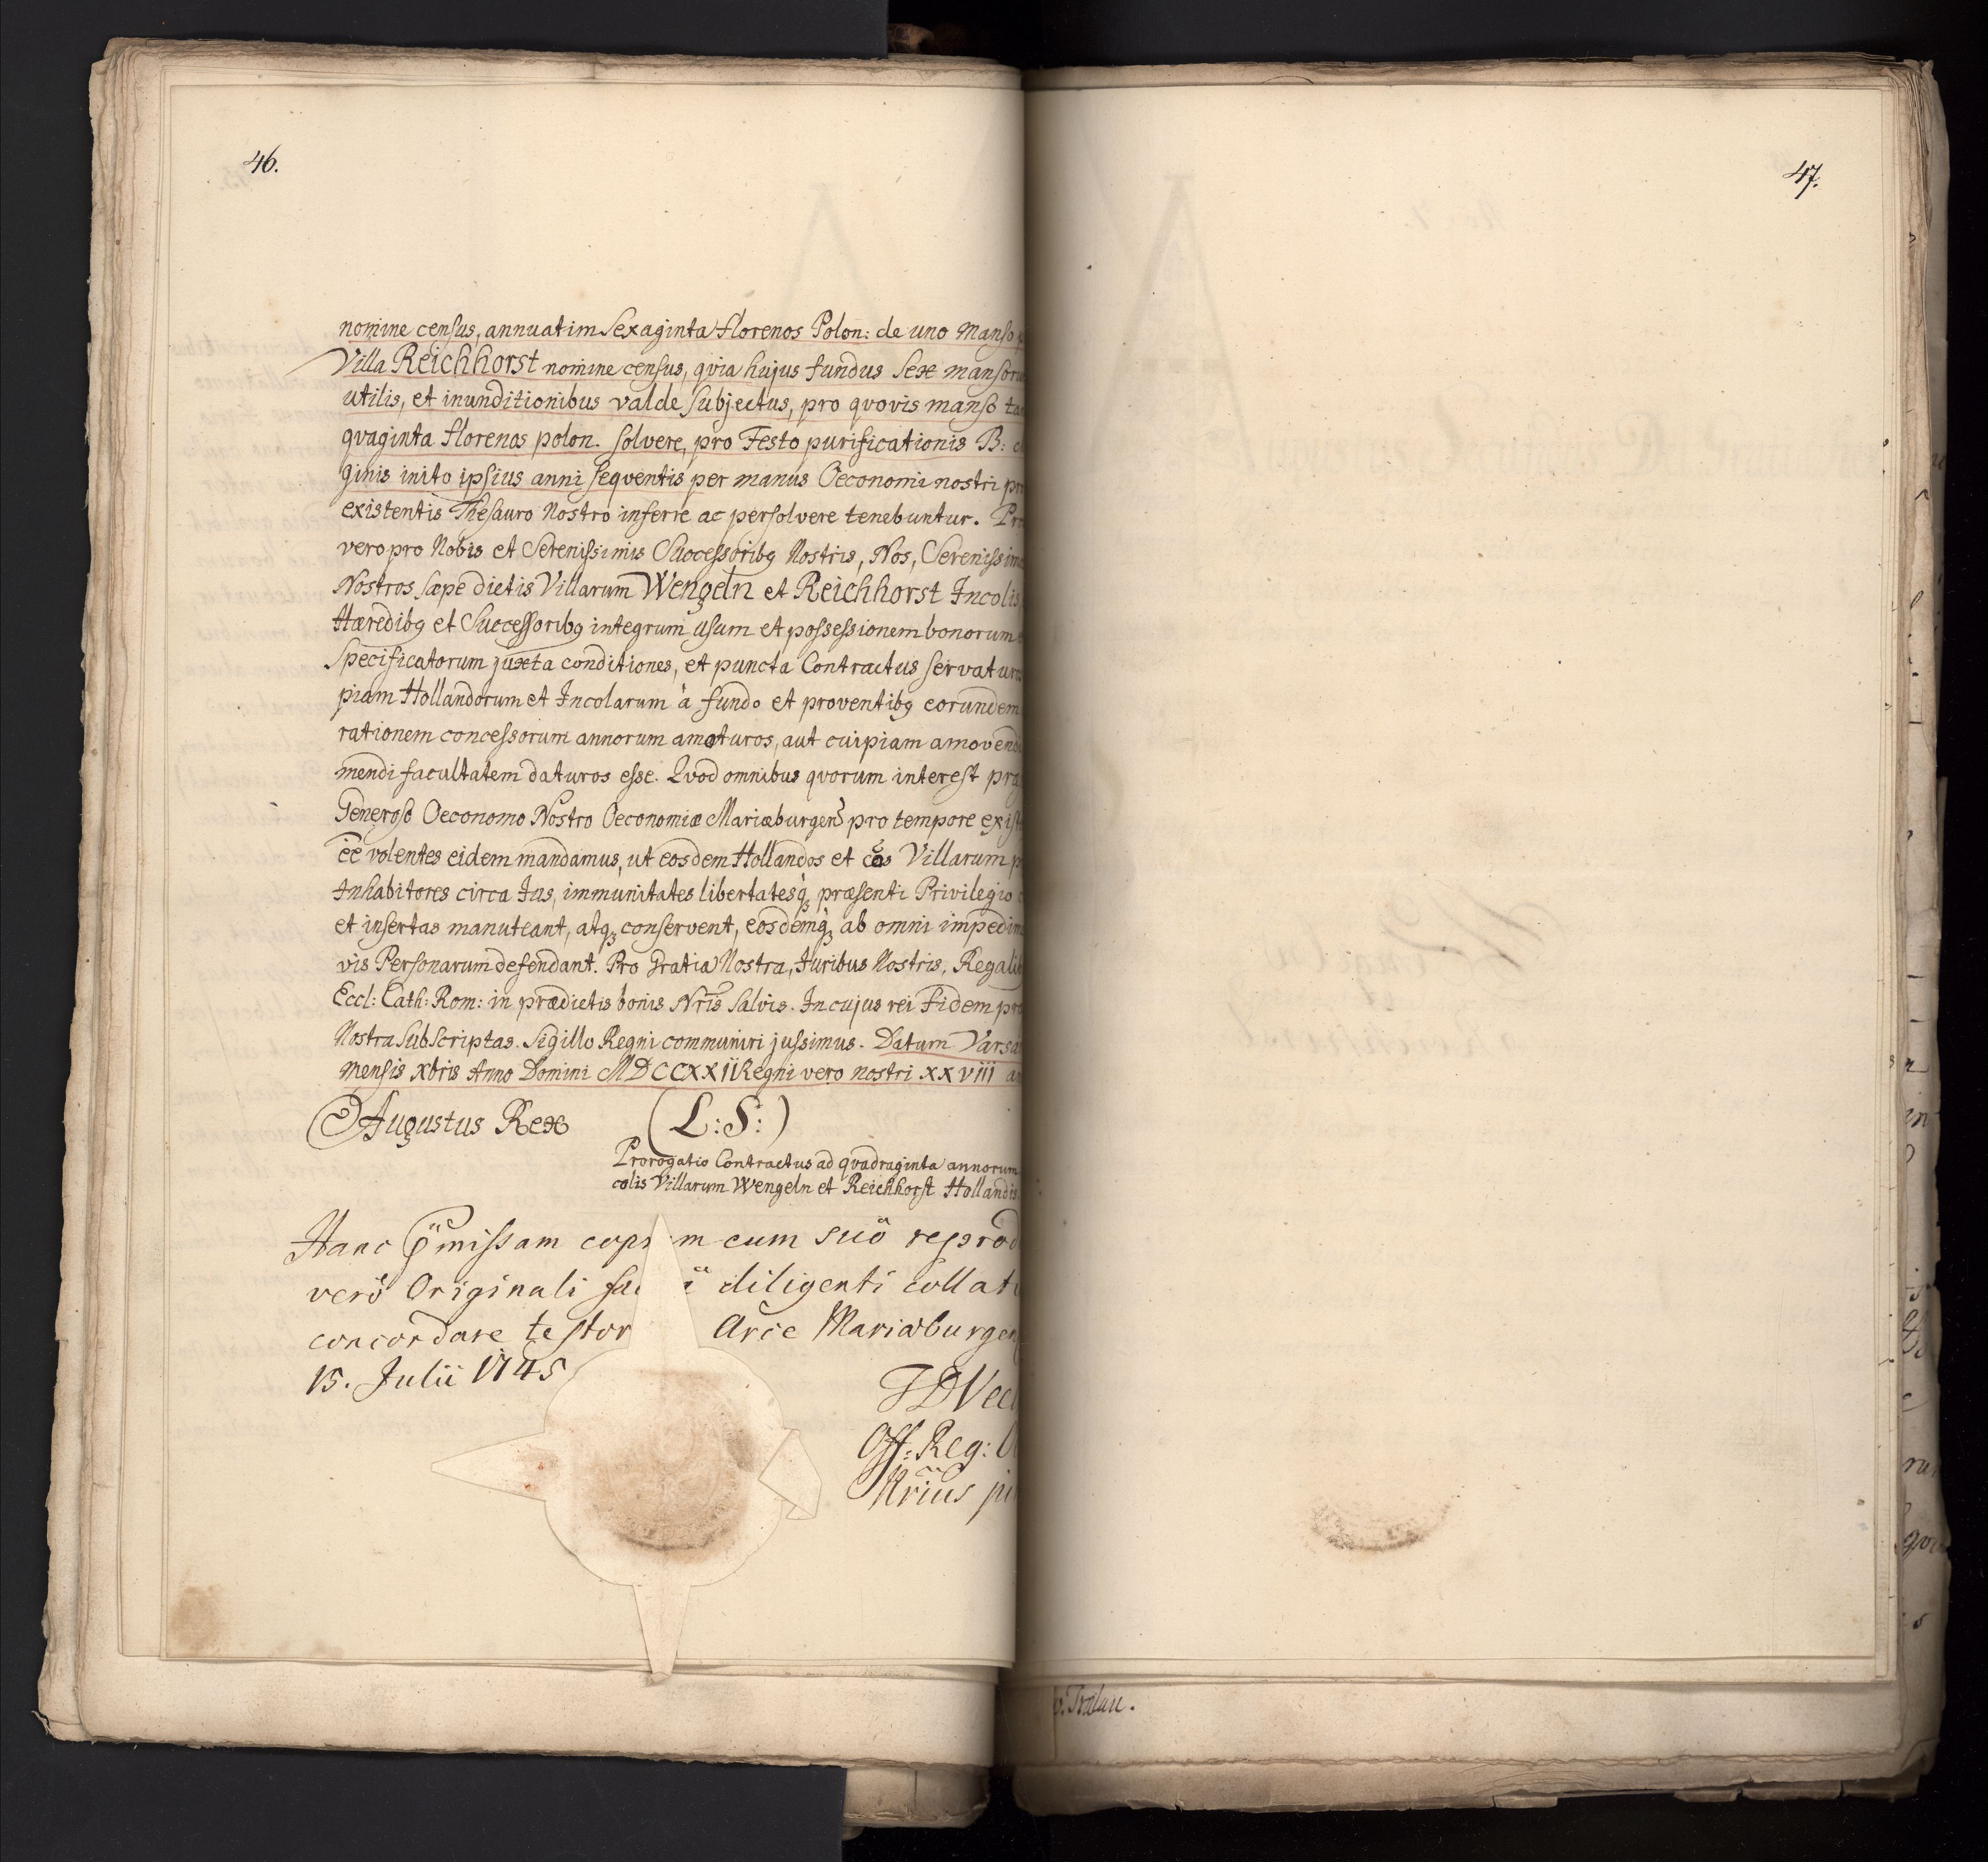 46.
nomine census, annuatim Sexaginta florenos Polon: de uno Manso
Villa Reichhorst nomine census, qvia hujus fundus Sex mansoru
utilis, et inunditionibus valde Subjectus, pro qvovis manso ta
qvaginta florenos polon. Solvere, pro Festo purificationis B:
ginis inito ipsius anni Seqventis per manus Oeconomi nostri pro
existentis Thesauro Nostro inferre ac persolvere tenebuntur. Pro
vero pro Nobis et Serenissimis Successoribq Nostris, Nos, Serenissim
Nostros Sæpe dictis Villarum Wengeln et Reichhorst Incolis
Hæredibq et Successoribq integrum usum et possessionem bonorum
Specificatorum juxta conditiones, et puncta Contractus servaturos
piam Hollandorum et Incolarum à fundo et proventibq eorundem
rationem concessorum annorum amoturos, aut cuipiam amovend
mendi facultatem daturos esse. Qvod omnibus qvorum interest præ
Generoso Oeconomo Nostro Oeconomiæ Mariæburgens pro tempore exist
ee volentes eidem mandamus, ut eosdem Hollandos et eos Villarum
Inhabitores circa Jus, immunitates libertatesq₃ præsenti Privilegio
et insertas manuteant, atq₃ conservent, eosdemq₃ ab omni impedim
vis Personarum defendant. Pro Gratia Nostra, Juribus Nostris, Regalib
Eccl: Cath: Rom: in prædictis bonis Nris Salvis. In cujus rei Fidem pro
Nostra Subscriptas. Sigillo Regni communiri jussimus. Datum Varsa
mensis Xbris Anno Domini MDCCXXII Regni vero nostri XXVIII an
Augustus Rex (L:S:)
Prorogatio Contractus ad qvadraginta annorum
colis Villarum Wengeln et Reichhorst Hollandis
Hanc p̈missam copiam cum suo reprod
verò Originali fac diligenti collat
concordare testor Arce Mariæburgen
15. Julii 1745
Off: Reg:
Nrius
47.